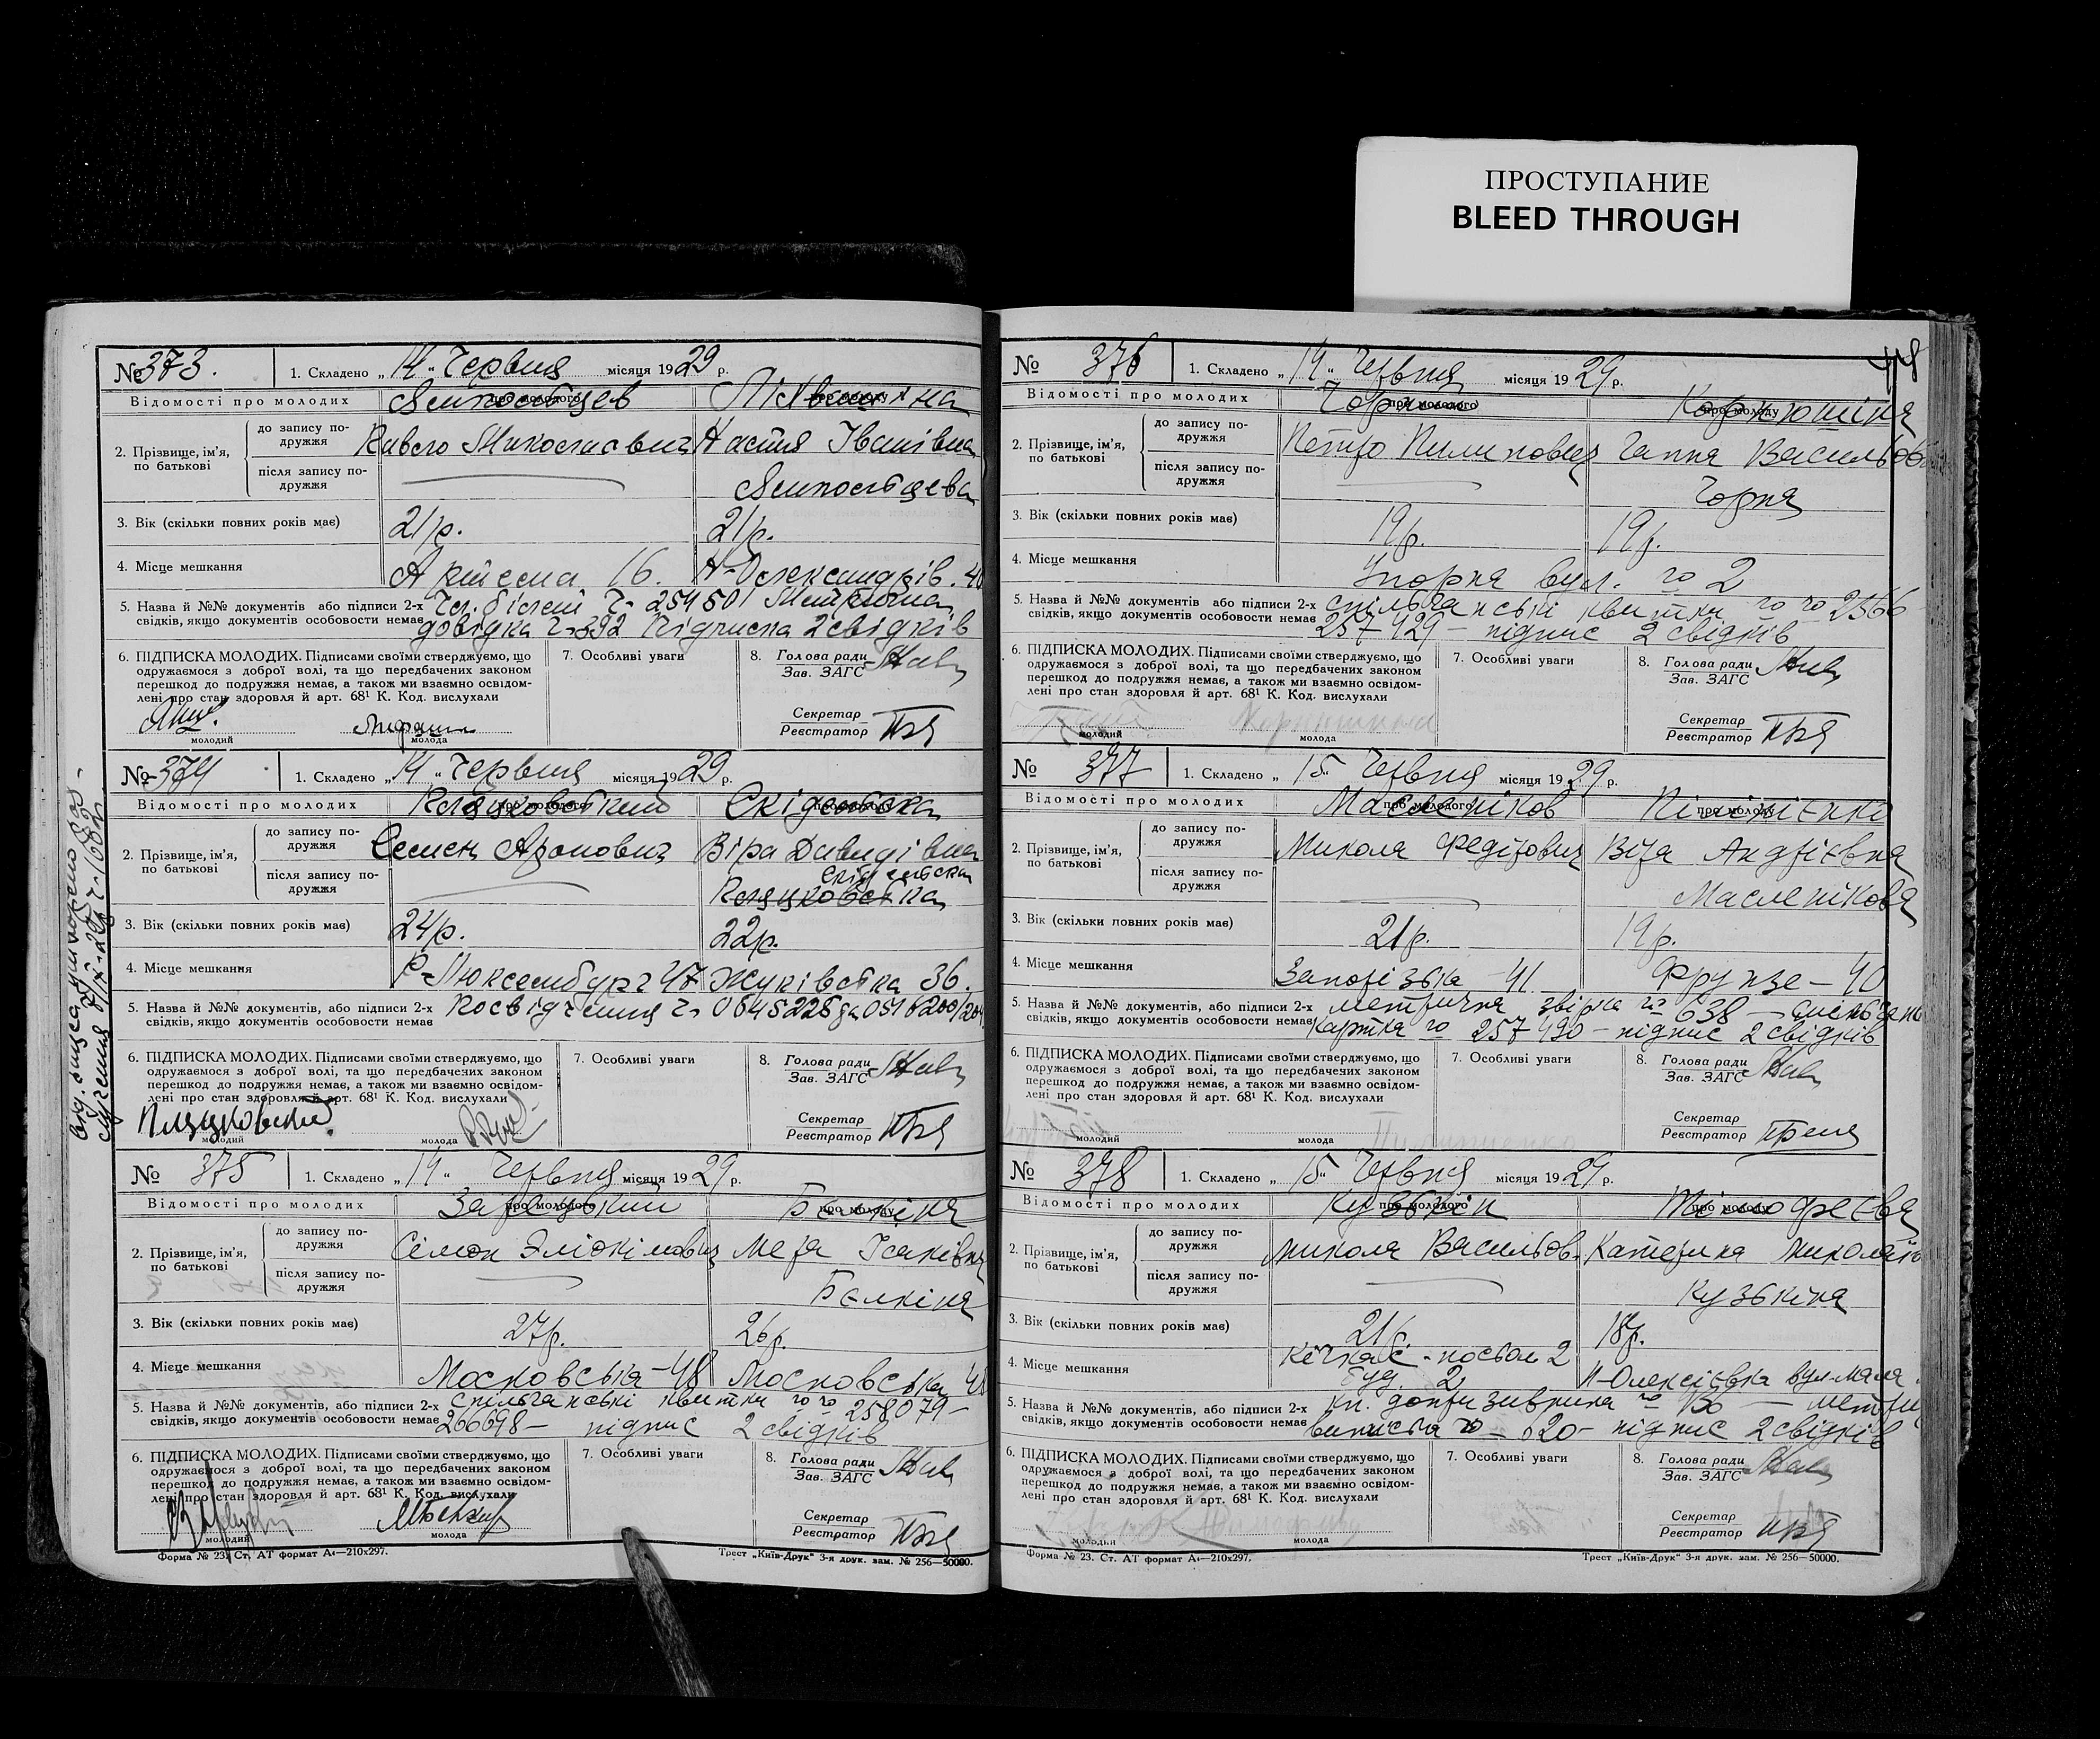 ПРОСТУПАНИЕ
BLEED THROUGH
№ 373. 1. Складено „14“ Червня місяця 1929 р.
Відомості про молодих про молодого про молоду
2. Прізвище, ім'я, по батькові
до запису по-
дружжя Павло Миколаєвич Настя Іванівна
після запису по-
дружжя
3. Вік (скільки повних років має) 21р. 21р.
4. Місце мешкання Артема 16. Н-Олександрів. 40
5. Назва й №№ документів або підписи 2-х 254501
свідків, якщо документів особовости немає довідка ч. 392 Підписка 2 свідків
6. ПІДПИСКА МОЛОДИХ. Підписами своїми стверджуємо, що
одружаємося з доброї волі, та що передбачених законом
перешкод до подружжя немає, а також ми взаємно освідом-
лені про стан здоровля й арт. 68¹ К. Код. вислухали
молодий молода
7. Особливі уваги
8. Голова ради
Зав. ЗАГС
Секретар
Реєстратор
№ 374 1. Складено „14“ Червня місяця 1929 р.
Відомості про молодих про молодого про молоду
2. Прізвище, ім'я, по батькові
до запису по-
дружжя Семен Аронович Віра Давидівна
після запису по-
дружжя
3. Вік (скільки повних років має) 24р. 22р.
4. Місце мешкання Р-Люксембург 47 Жуківська 36.
5. Назва й №№ документів, або підписи 2-х Посвідчення ч. 0645226 да 0516200/204
свідків, якщо документів особовости немає
6. ПІДПИСКА МОЛОДИХ. Підписами своїми стверджуємо, що
одружаємося з доброї волі, та що передбачених законом
перешкод до подружжя немає, а також ми взаємно освідом-
лені про стан здоровля й арт. 68¹ К. Код. вислухали
молодий молода
7. Особливі уваги
8. Голова ради
Зав. ЗАГС
Секретар
Реєстратор
№ 375 1. Складено „14“ Червня місяця 1929 р.
Відомості про молодих про молодого Бєлкіна про молоду
2. Прізвище, ім'я, по батькові
до запису по-
дружжя Сімон Мера Ісаківна
після запису по-
дружжя Бєлкіна
3. Вік (скільки повних років має) 27р. 26р.
4. Місце мешкання Московська-48 Московська 48
5. Назва й №№ документів, або підписи 2-х спільчанські квитки 258079-
свідків, якщо документів особовости немає 260698- підпис 2 свідків
6. ПІДПИСКА МОЛОДИХ. Підписами своїми стверджуємо, що
одружаємося з доброї волі, та що передбачених законом
перешкод до подружжя немає, а також ми взаємно освідом-
лені про стан здоровля й арт. 68¹ К. Код. вислухали
молодий молода
7. Особливі уваги
8. Голова ради
Зав. ЗАГС
Секретар
Реєстратор
Форма № 23. Ст. АТ формат А₄—210x297. Трест „Київ-Друк“ 3-я друк. зам. № 256—50000.
№ 376 1. Складено „14“ Червня місяця 1929 р.
Відомості про молодих про молодого Корнюшіна про молоду
2. Прізвище, ім'я, по батькові
до запису по-
дружжя Петро Пилипович Ганна Васильов
після запису по-
дружжя Чорна
3. Вік (скільки повних років має) 19р. 19р.
4. Місце мешкання вул. 2
5. Назва й №№ документів, або підписи 2-х спільчанські квитки 2566
свідків, якщо документів особовости немає 257429 - підпис 2 свідків
6. ПІДПИСКА МОЛОДИХ. Підписами своїми стверджуємо, що
одружаємося з доброї волі, та що передбачених законом
перешкод до подружжя немає, а також ми взаємно освідом-
лені про стан здоровля й арт. 68¹ К. Код. вислухали
молодий молода
7. Особливі уваги
8. Голова ради
Зав. ЗАГС
Секретар
Реєстратор
№ 377 1. Складено „15“ Червня місяця 1929 р.
Відомості про молодих Масленіков про молодого про молоду
2. Прізвище, ім'я, по батькові
до запису по-
дружжя Микола Федорович Віра Андрієвна
після запису по-
дружжя Маслепікова
3. Вік (скільки повних років має) 21р. 19р.
4. Місце мешкання Запорізька - 41 Фрунзе - 40
5. Назва й №№ документів, або підписи 2-х метрична 638 —
свідків, якщо документів особовости немає картка 257490 - підпис 2 свідків
6. ПІДПИСКА МОЛОДИХ. Підписами своїми стверджуємо, що
одружаємося з доброї волі, та що передбачених законом
перешкод до подружжя немає, а також ми взаємно освідом-
лені про стан здоровля й арт. 68¹ К. Код. вислухали
молодий молода
7. Особливі уваги
8. Голова ради
Зав. ЗАГС
Секретар
Реєстратор
№ 378 1. Складено „15“ Червня місяця 1929 р.
Відомості про молодих Кузькін про молодого Тімофєєва про молоду
2. Прізвище, ім'я, по батькові
до запису по-
дружжя Микола Васильов. Катерина
після запису по-
дружжя Кузькіна
3. Вік (скільки повних років має) 21р. 18р.
4. Місце мешкання Кічкас - 2 Н-Олексієвка вул.
5. Назва й №№ документів, або підписи 2-х
свідків, якщо документів особовости немає 20 - підпис 2 свідків
6. ПІДПИСКА МОЛОДИХ. Підписами своїми стверджуємо, що
одружаємося з доброї волі, та що передбачених законом
перешкод до подружжя немає, а також ми взаємно освідом-
лені про стан здоровля й арт. 68¹ К. Код. вислухали
молодий молода
7. Особливі уваги
8. Голова ради
Зав. ЗАГС
Секретар
Реєстратор
Форма № 23. Ст. АТ формат А₄—210x297. Трест „Київ-Друк“ 3-я друк. зам. № 256—50000.